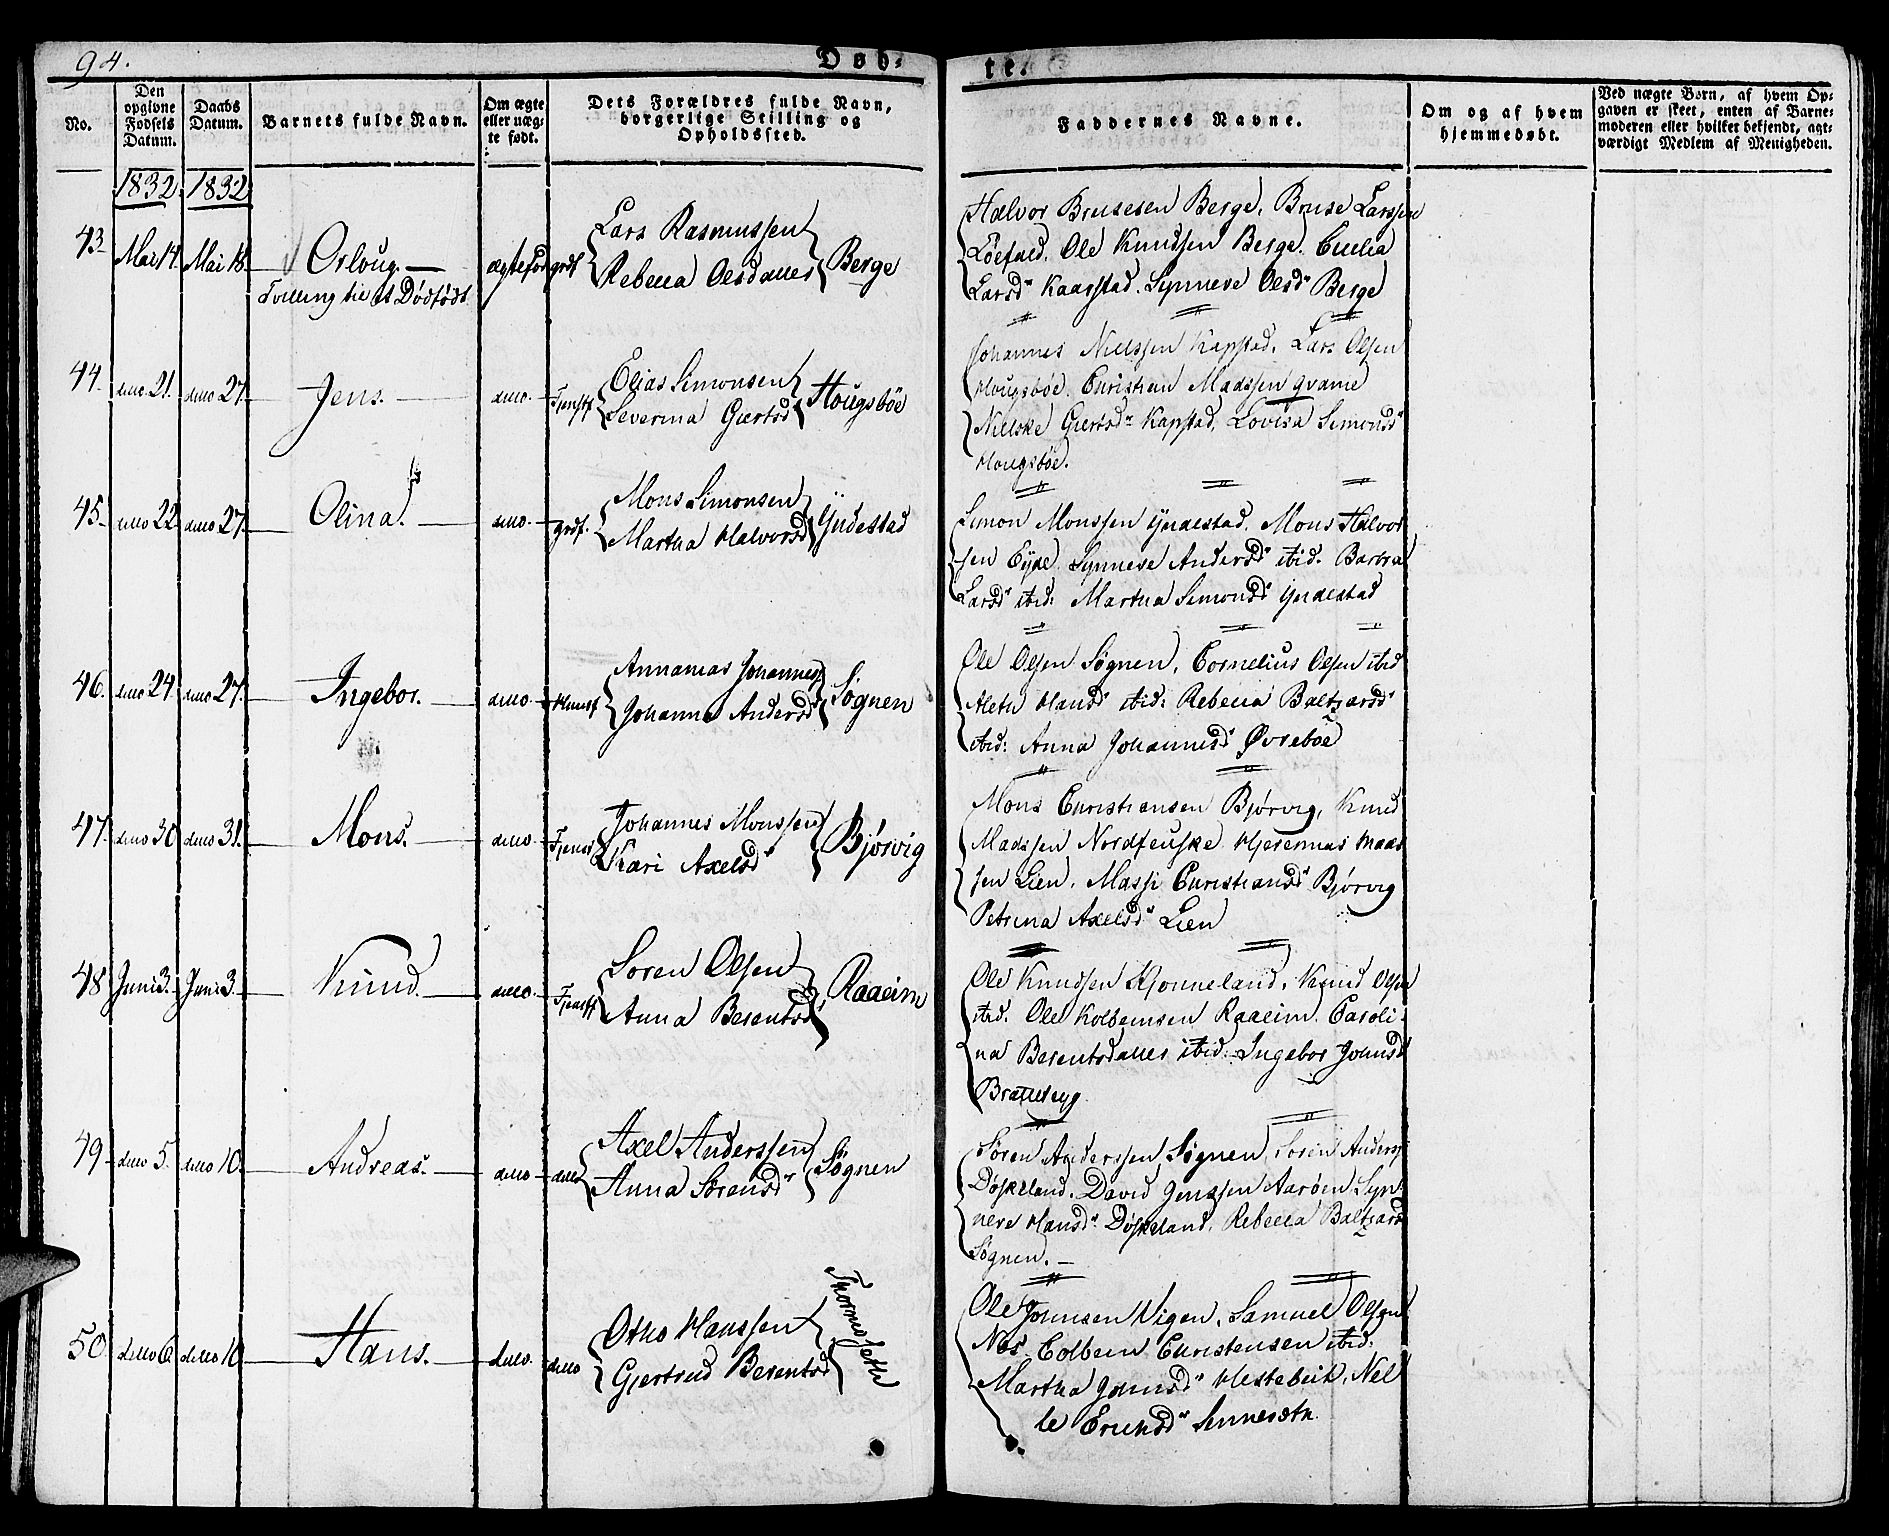 94.
Døb-
te.
No.
Den
opgivne
Fødsels
Datum.
Daabs
Datum.
Barnets fulde Navn.
Om ægte
eller uæg-
te født.
Dets Forældres fulde Navn,
borgerlige Stilling og
Opholdssted.
Faddernes Navne.
Om og af hvem
hjemmedøbt.
Ved uægte Børn, af hvem Op-
gaven er skeet, enten af Barne-
moderen eller hvilket bekjendt, agt-
værdigt Medlem af Menigheden.
1832 1832
43. Mai 14. Mai 18. Orloug.
Tvilling til et Dødfødt.
ægtefød grdf
Lars Rasmussen
Rebecca Olsdatter
Berge
Halvor Brusesen Berge, Bruse Larssen
Løefald, Ole Knudsen Berge. Cicilia
Larsd. Kaarstad. Synneve Olsd. Berge
44. ditto 21. ditto 27. Jens.
ditto. Tjenstf
Elias Simonsen
Severina Giertsd
Hougsbøe
Johannes Nielssen Kapstad, Lars Olsen
Hougsbøe. Christian Madssen Qvame
Nilske Giertsd. Kapstad, Lovisa Simonsd
Hougsbøe.
45. ditto 22. ditto 27. Olina.
ditto. grdf.
Mons Simonsen
Martha Halvorsd
Yndestad
Simon Monssen Yndestad. Mons Halvor
sen Eyde. Synneve Andersd ibid. Barbra
Larsd ibid. Martha Simonsd Yndestad
46. ditto 24. ditto 27. Ingebor.
ditto. Huusf
Annanias Johanness
Johanna Andersd
Søgnen
Ole Olsen Søgnen, Cornelius Olsen ibid
Aleth Hansd ibid: Rebecca Baltzarsd
ibid: Anna Johannesd Øvrebøe
47. ditto 30. ditto 31. Mons.
ditto. Tjenstf
Johannes Monssen
Kari Axelsd
Bjørvig
Mons Christiansen Bjørvig, Knud
Madssen Nordfenske Hjeremias Maas
sen Lien. Massi Christiansd Bjørvig
Petrina Axelsd Lien
48. Juni 3. Juni 3. Knud.
ditto. Tjenstf
Søren Olsen
Anna Berentsd
Raaeim
Ole Knudsen Kjonneland, Knud Olsen
ibid. Ole Kolbeinsen Raaeim. Caroli-
na Berentsdatter ibid. Ingebor Johnsd
49. ditto 5. ditto 10. Andreas.
ditto. ditto
Axel Anderssen
Anna Sørensd
Søgnen
Søren Anderssen Søgnen, Søren Anderss
Døskeland, David Jenssen Aarøen Syn-
neve Hansd. Døskeland, Rebecca Baltzarsd
Søgnen.
50. ditto 6. ditto 10. Hans.
ditto. ditto
Otho Hanssen
Giertrud Berentsd
Ole Johnsen Vigen, Samuel Olsen
Nes. Colbein Christensen ibid.
Martha Johnsd Hestebeit, Nel
le Erichsd